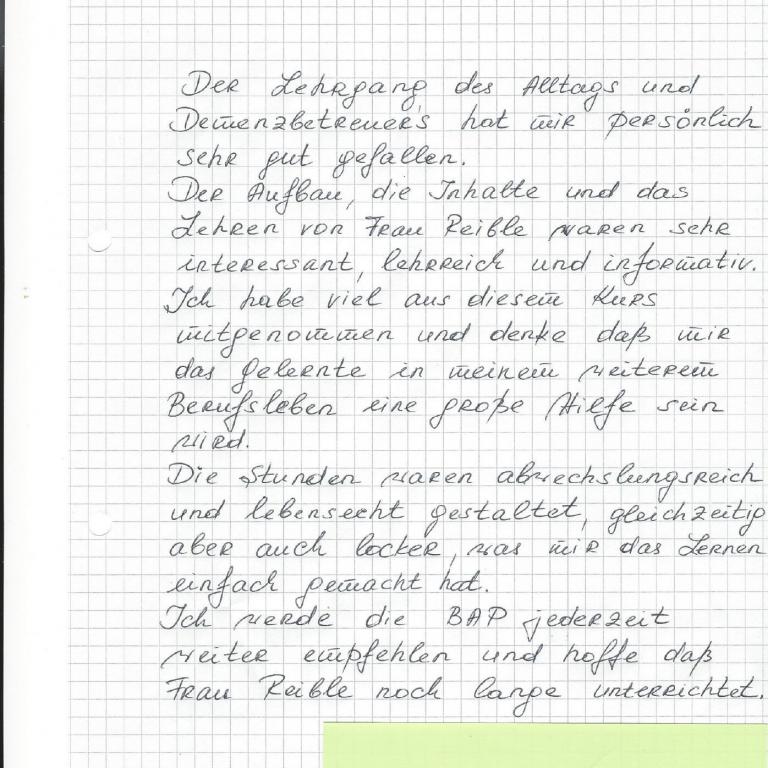 Der Lehrgang des Alltags und
Demenzbetreuer's hat mir persönlich
sehr gut gefallen.
Der Aufbau, die Inhalte und das
Lehren von Frau Reible waren sehr
interessant, lehrreich und informativ.
Ich habe viel aus diesem Kurs
mitgenommen und denke daß mir
das gelernte in meinem weiterem
Berufsleben eine große Hilfe sein
wird.
Die Stunden waren abwechslungsreich
und lebensecht gestaltet, gleichzeitig
aber auch locker, was mir das Lernen
einfach gemacht hat.
Ich werde die BAP jederzeit
weiter empfehlen und hoffe daß
Frau Reible noch lange unterrichtet.